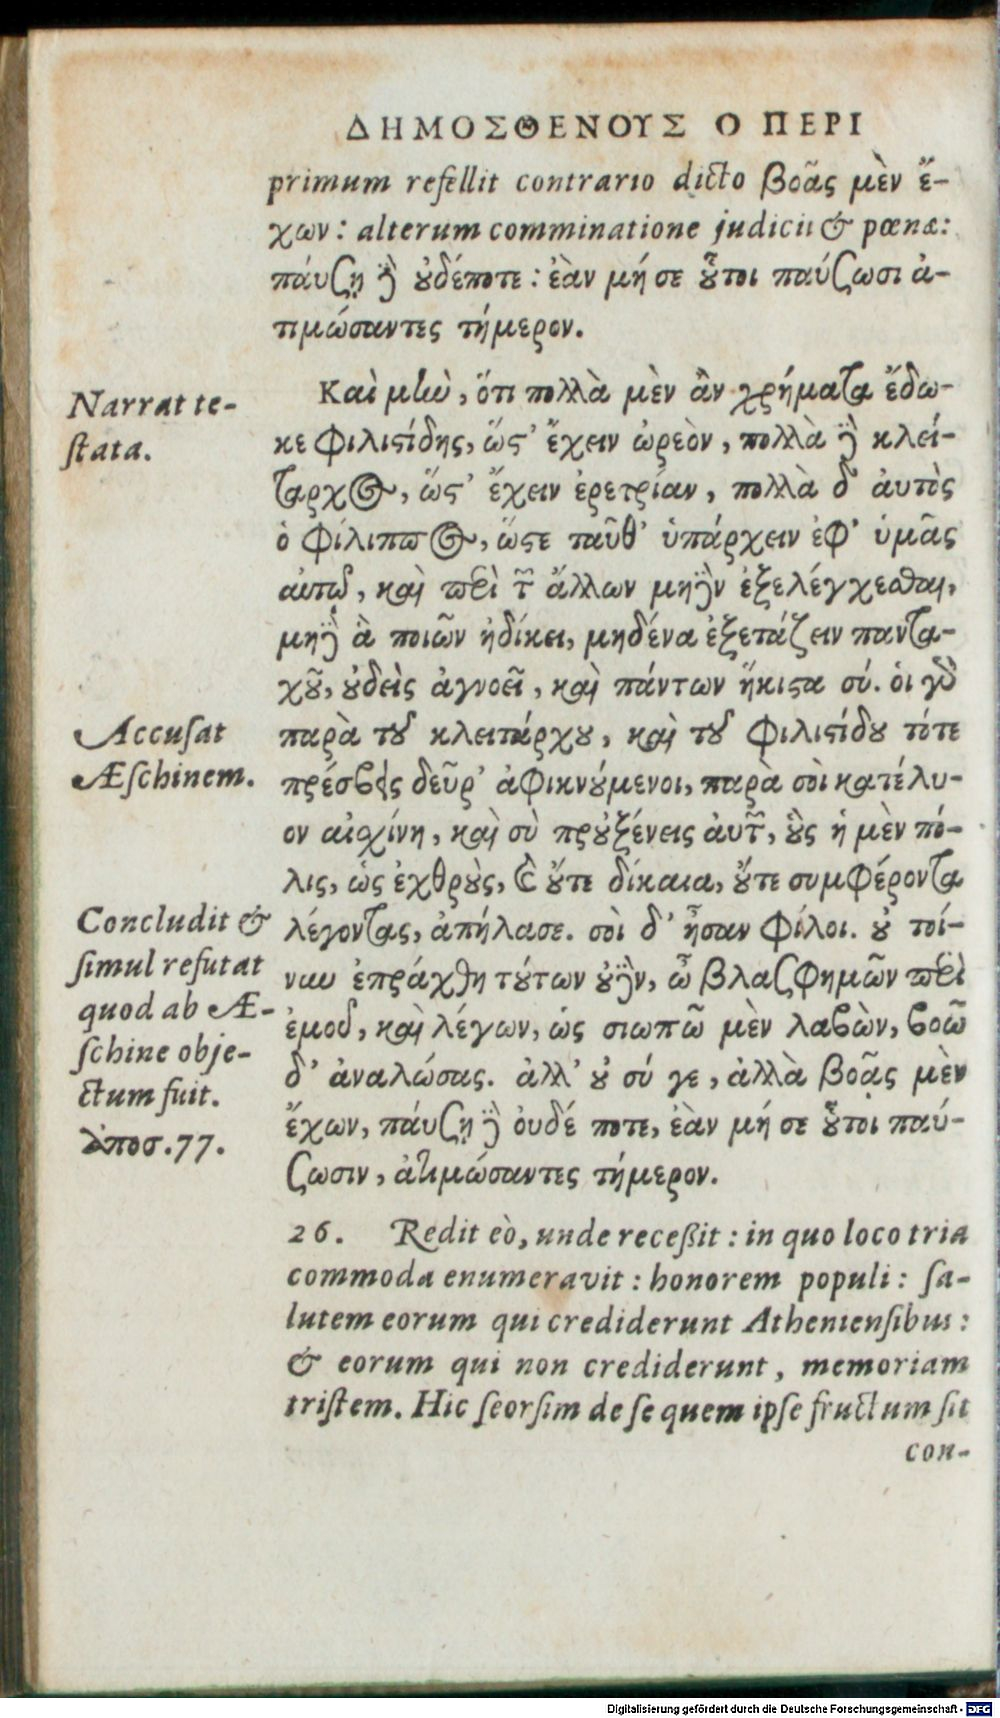 ΔΗΜΟΣΘΕΝΟΥΣ Ο ΠΕΡΙ
primum refellit contrario dicto βοᾷς μὲν ἔ-
χων: alterum comminatione judicii & pœnæ:
πάυσῃ δὲ ȣ̓δέποτε: ἐὰν μή σε ȣ̔͂τοι παύσωσι ἀ-
τιμώσαντες τήμερον.
Narrat te-
stata.
Καὶ μὴν, ὅτι πολλὰ μὲν ἂν χρήματα ἔδω-
κε Φιλιϛίδης, ὥϛ' ἔχειν ὠρεὸν, πολλὰ δὲ κλεί-
ταρχος, ὥϛ' ἔχειν ἐρετρίαν, πολλὰ δ' ἀυτὸς
ὁ Φίλιππος, ὥϛε ταῦθ' ὑπάρχειν ἐφ' ὑμᾶς
αὑτῷ, καὶ περὶ τῶν ἄλλων μηδὲν ἐξελέγχεσθαι,
μηδὲ ἃ ποιῶν ἠδίκει, μηδένα ἐξετάζειν παντα-
χȣ͂, ȣ̓δεὶς ἀγνοεῖ, καὶ πάντων ἥκιϛα σύ. ὁι γὰρ
Accusat
Æschinem.
παρὰ τοῦ κλειτάρχȣ, καὶ τοῦ Φιλιϛίδȣ τότε
πρέσβεις δεῦρ' ἀφικνȣ́μενοι, παρὰ σοὶ κατέλυ-
ον αἰσχίνη, καὶ σὺ πρȣ̓ξένεις ἀυτῶν, ȣ̔̀ς ἡ μὲν πό-
λις, ὡς ἐχθρȣ̀ς, καὶ ȣ̓́τε δίκαια, ȣ̓́τε συμφέροντα
Concludit &
simul refutat
quod ab Æ-
schine obje-
ctum fuit.
ἀποσ.77.
λέγοντας, ἀπήλασε. σοὶ δ' ἦσαν φίλοι. ȣ̓ τοί-
νυν ἐπράχθη τȣ́των ȣ̓δὲν, ὦ βλασφημῶν περὶ
ἐμοῦ, καὶ λέγων, ὡς σιωπῶ μὲν λαβὼν, βοῶ
δ' ἀναλώσας. ἀλλ' ȣ̓ σύ γε, ἀλλὰ βοᾷς μὲν
ἔχων, πάυσῃ δὲ ὀυδέ ποτε, ἐὰν μή σε ȣ̔͂τοι παύ-
σωσιν, ἀτιμώσαντες τήμερον.
26. Redit eò, unde recessit: in quo loco tria
commoda enumeravit: honorem populi: sa-
lutem eorum qui crediderunt Atheniensibus:
& eorum qui non crediderunt, memoriam
tristem. Hic seorsim de se quem ipse fructum sit
con-
Digitalisierung gefördert durch die Deutsche Forschungsgemeinschaft - DFG